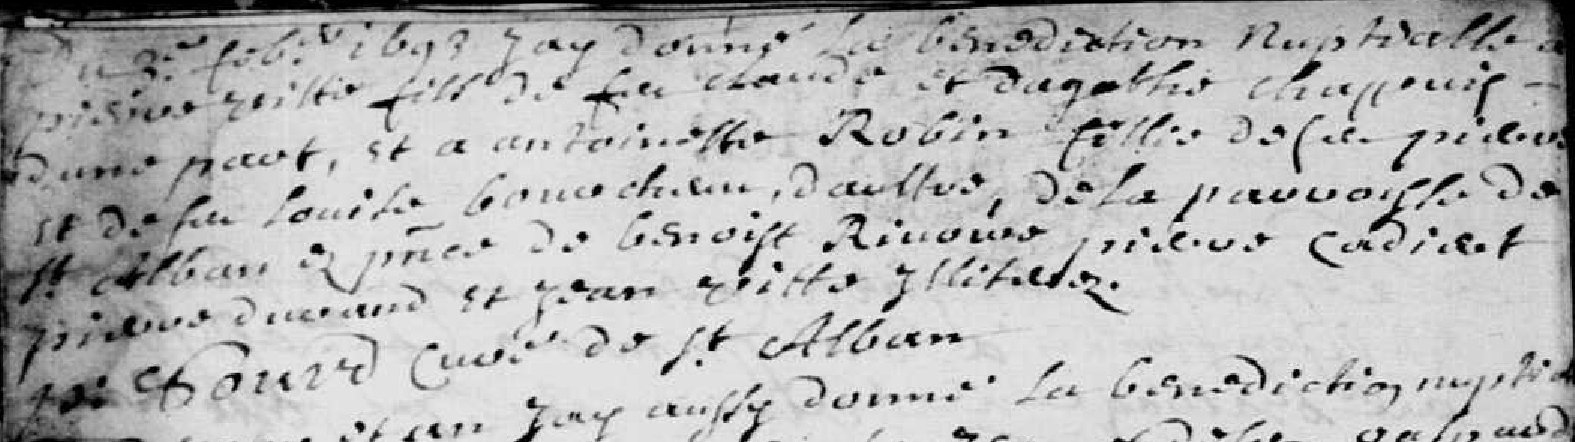 Du 3e febr 1693 Jay donné la benediction Nuptialle a
pierre pitte fils de feu claude et dagathe chappuis
dune part, et a antoinette Robin fille de feu pierre
et de feu louise bonnechieu, daultre, de la parroisse de
st Alban & pnce de benoist Rivoire pierre Cadiert
pierre durand et Jean pitte Jlliterez.
Curé de st Alban
et an Jay aussy donné la benediction nuptia